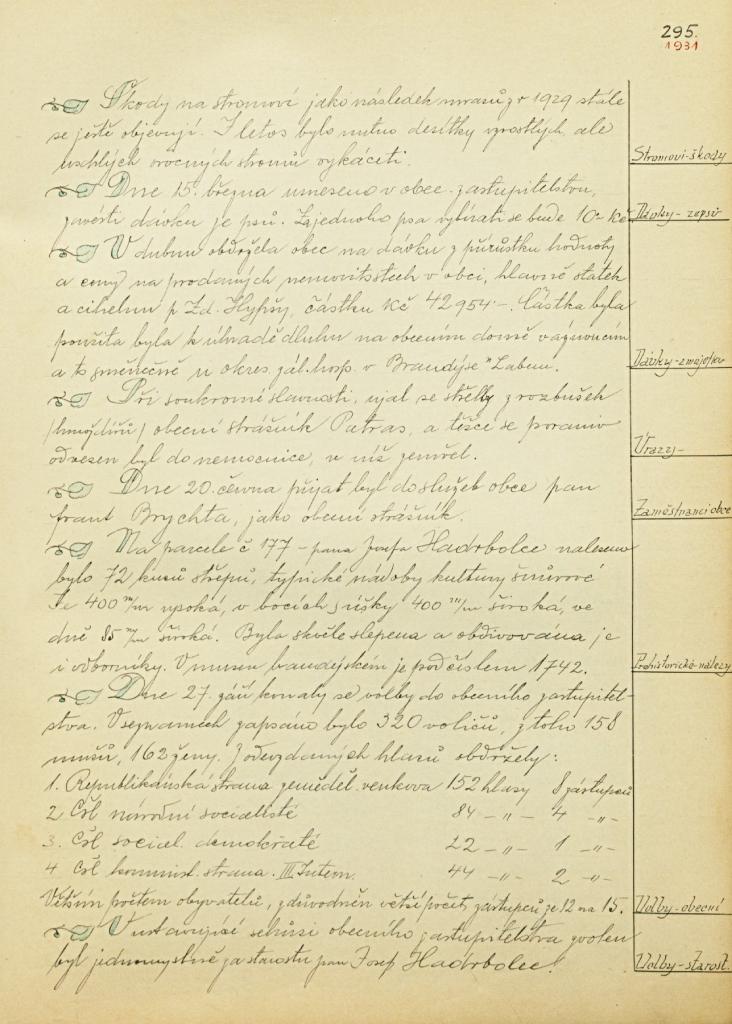 295.
1931
Škody na stromoví jako následek mrazů z r 1929 stále
se ještě objevují. I letos bylo nutno desítky vzrostlých, ale
uschlých ovocných stromů vykáceti.
Stromoví-škody
Dne 15. března usneseno v obec. zastupitelstvu,
zavésti dávku ze psů. Za jednoho psa vybírati se bude 10- Kč
Dávky - ze psů
V dubnu obdržela obec na dávku z přírůstku hodnoty
a ceny na prodaných nemovitostech v obci, hlavně statek
a cihelnu p. Zd. Hypšy, částku Kč 42954-. Částka byla
použita byla k úhradě dluhu na obecním domě váznoucím
a to směnečně u okres. zál. hosp. v Brandýse n Labem.
Dávky - z majetku
Při soukromé slavnosti, ujal se střelby z rozbušek
(hmoždířů) obecní strážník Patras, a těžce se poraniv
odvezen byl do nemocnice, v níž zemřel.
Úrazy-
Dne 20. června přijat byl do služeb obce pan
Frant Brychta, jako obecní strážník.
Zaměstnanci obce
Na parcele č 177 - pana Josefa Hadrbolce nalezeno
bylo 72 kusů střepů, typické nádoby kultury šňůrové
Je 400 m/m vysoká, v bocích šířky 400 m/m široká, ve
dně 85 m/m široká. Byla skvěle slepena a obdivována je
i odborníky. V museu brandýském je pod číslem 1742.
Prohistorické nálezy
Dne 27. září konaly se volby do obecního zastupitel-
stva. V seznamech zapsáno bylo 320 voličů, z toho 158
mužů, 162 ženy. Z odevzdaných hlasů obdržely:
1. Republikánská strana zeměděl. venkova 152 hlasy 8 zástupců
2 Čsl národní socialisté 84 -„- 4 -„-
3. Čsl social. demokraté 22 -„- 1 -„-
4 Čsl komunist. strana. III Intern. 44 -„- 2 -„-
Větším počtem obyvatelů, zdůvodněn větší počet zástupců ze 12 na 15.
Volby-obecní
V ustavující schůzi obecního zastupitelstva zvolen
byl jednomyslně za starostu pan Josef Hadrbolec.
Volby-starost.